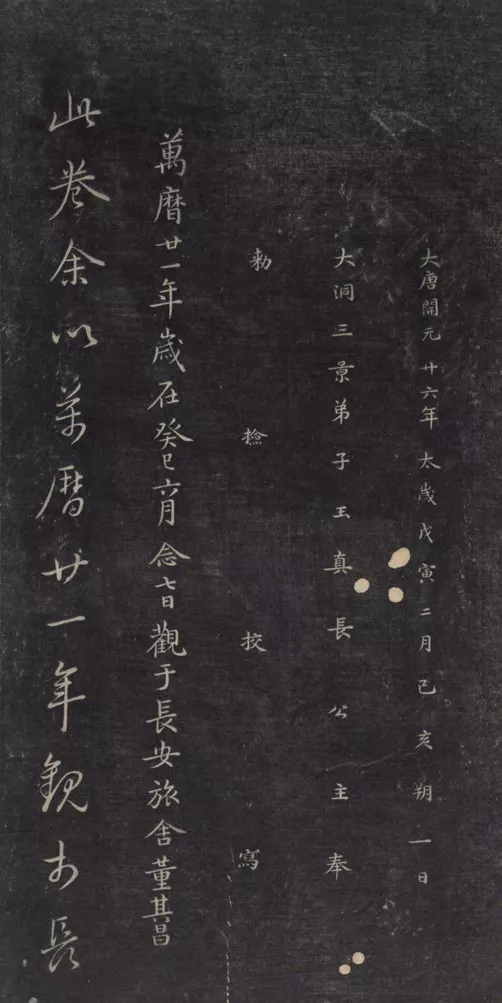 大唐開元廿六年太歲戊寅二月己亥朔一日
大洞三景弟子玉真長公主奉
勑檢挍寫
萬曆廿一年歲在癸巳六月念七日觀于長安旅舍董其昌
此卷余以萬曆廿一年觀於長